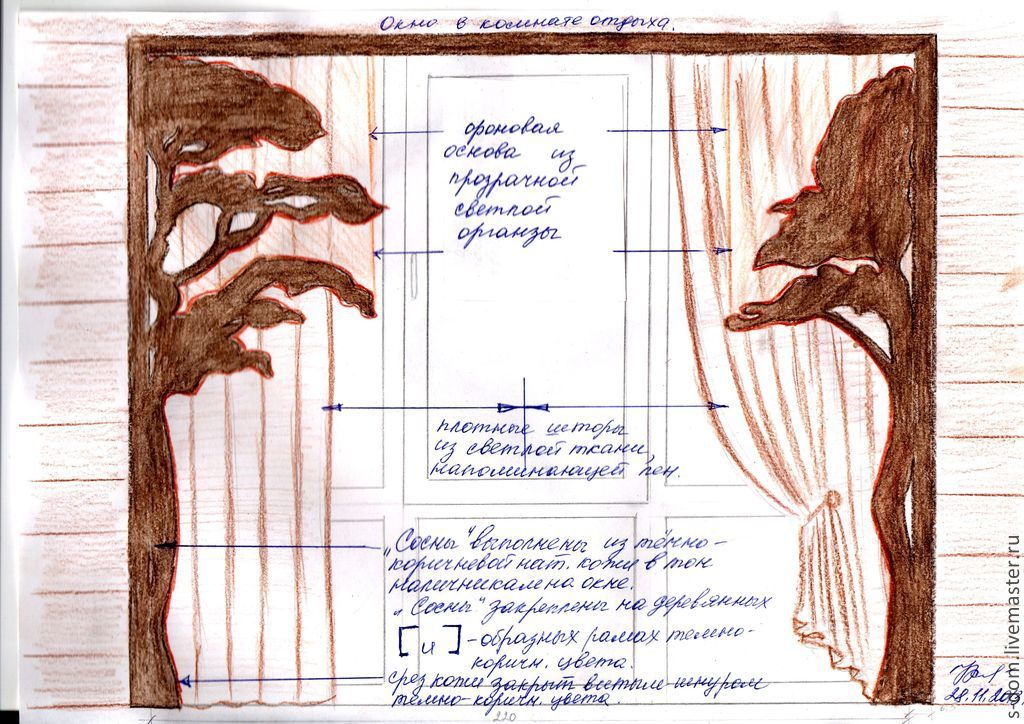 Окно в комнате отдыха.
фоновая
основа из
прозрачной
светлой
органзы
плотные шторы
из светлой ткани,
напоминающей лён.
„Сосны" выполнены из тёмно-
коричневой нат. кожи в тон
наличникам на окне.
„Сосны" закреплены на деревянных
[и] - образных рамах темно-
коричн. цвета.
срез кожи закрыт витым шнуром
темно-коричн. цвета.
220
s-dom.livemaster.ru